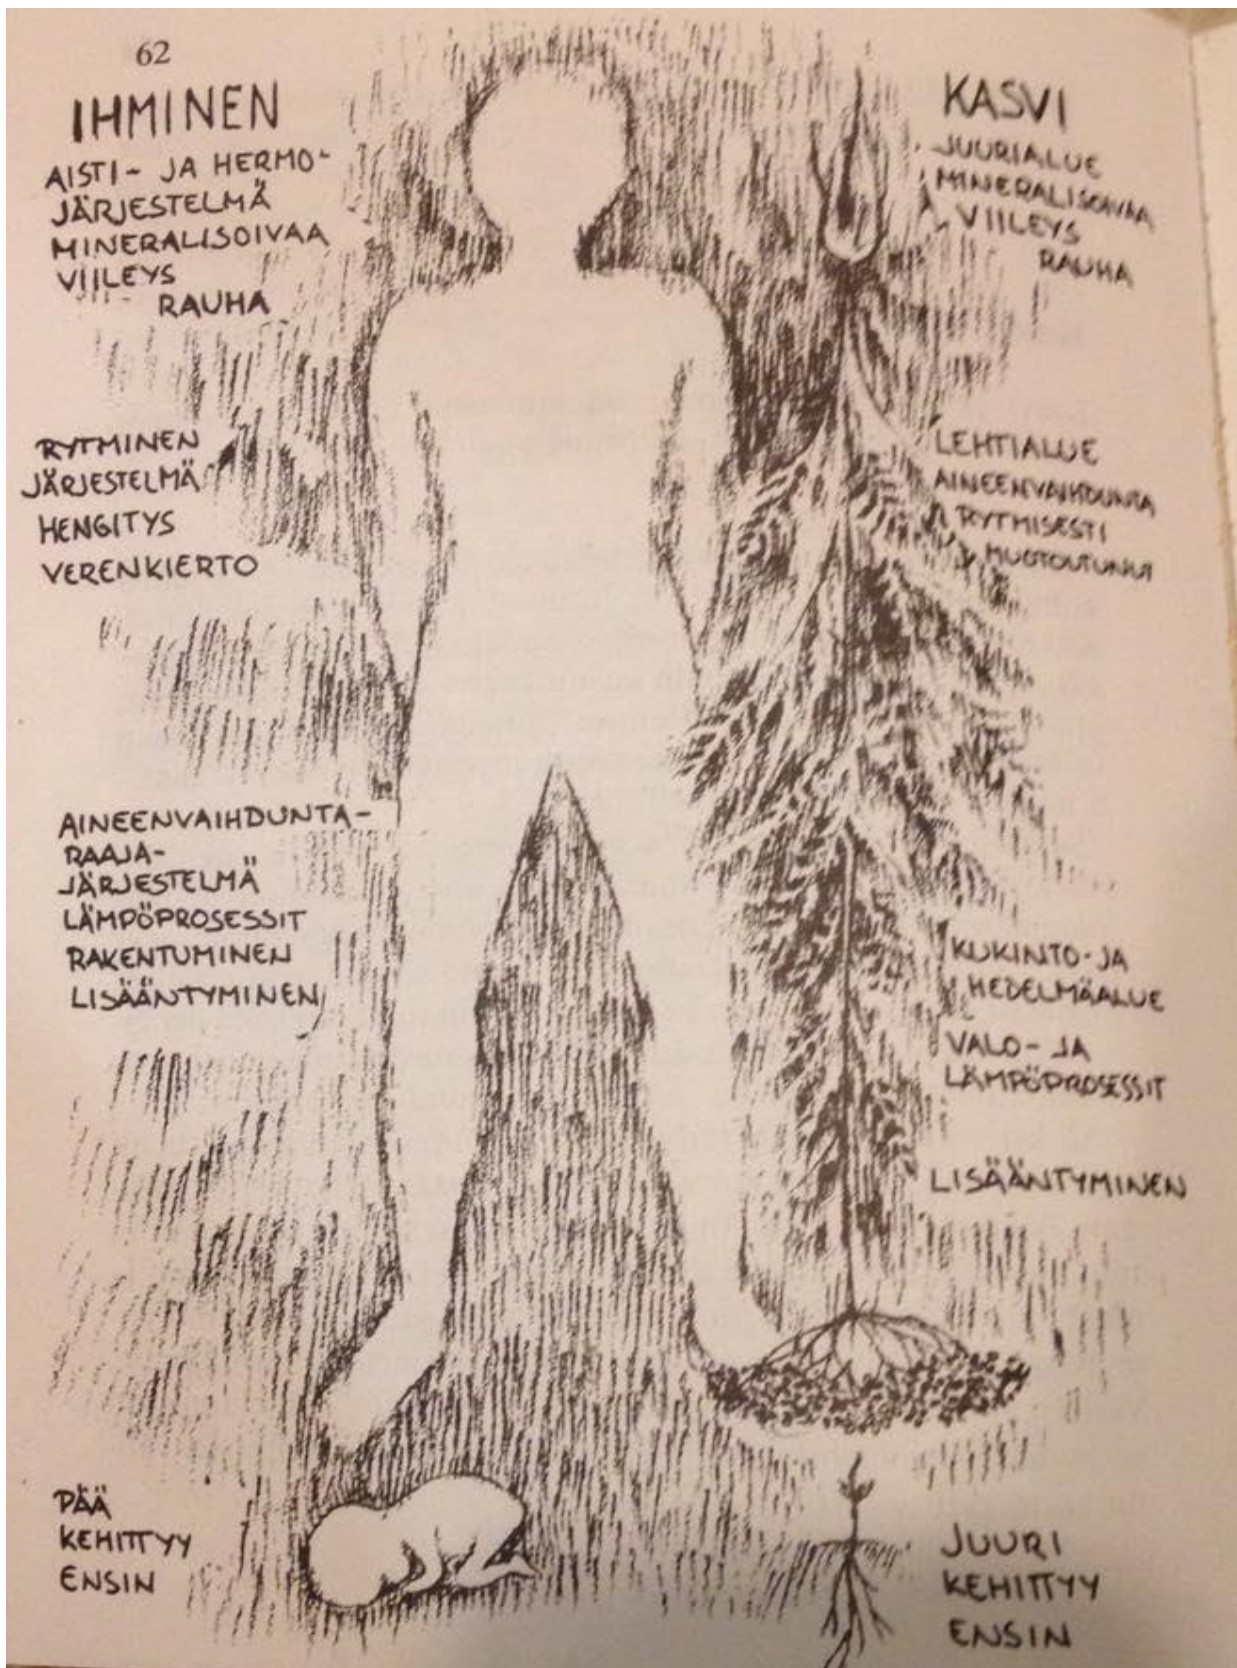 62
IHMINEN
AISTI- JA HERMO-
JÄRJESTELMÄ
MINERALISOIVAA
VIILEYS
RAUHA
RYTMINEN
JÄRJESTELMÄ
HENGITYS
VERENKIERTO
AINEENVAIHDUNTA-
RAAJA-
JÄRJESTELMÄ
LÄMPÖPROSESSIT
RAKENTUMINEN
LISÄÄNTYMINEN
PÄÄ
KEHITTYY
ENSIN
KASVI
JUURIALUE
MINERALISOIVAA
VIILEYS
RAUHA
LEHTIALUE
AINEENVAIHDUNTA
RYTMISESTI
MUOTOUTUNUT
KUKINTO- JA
HEDELMÄALUE
VALO- JA
LÄMPÖPROSESSIT
LISÄÄNTYMINEN
JUURI
KEHITTYY
ENSIN